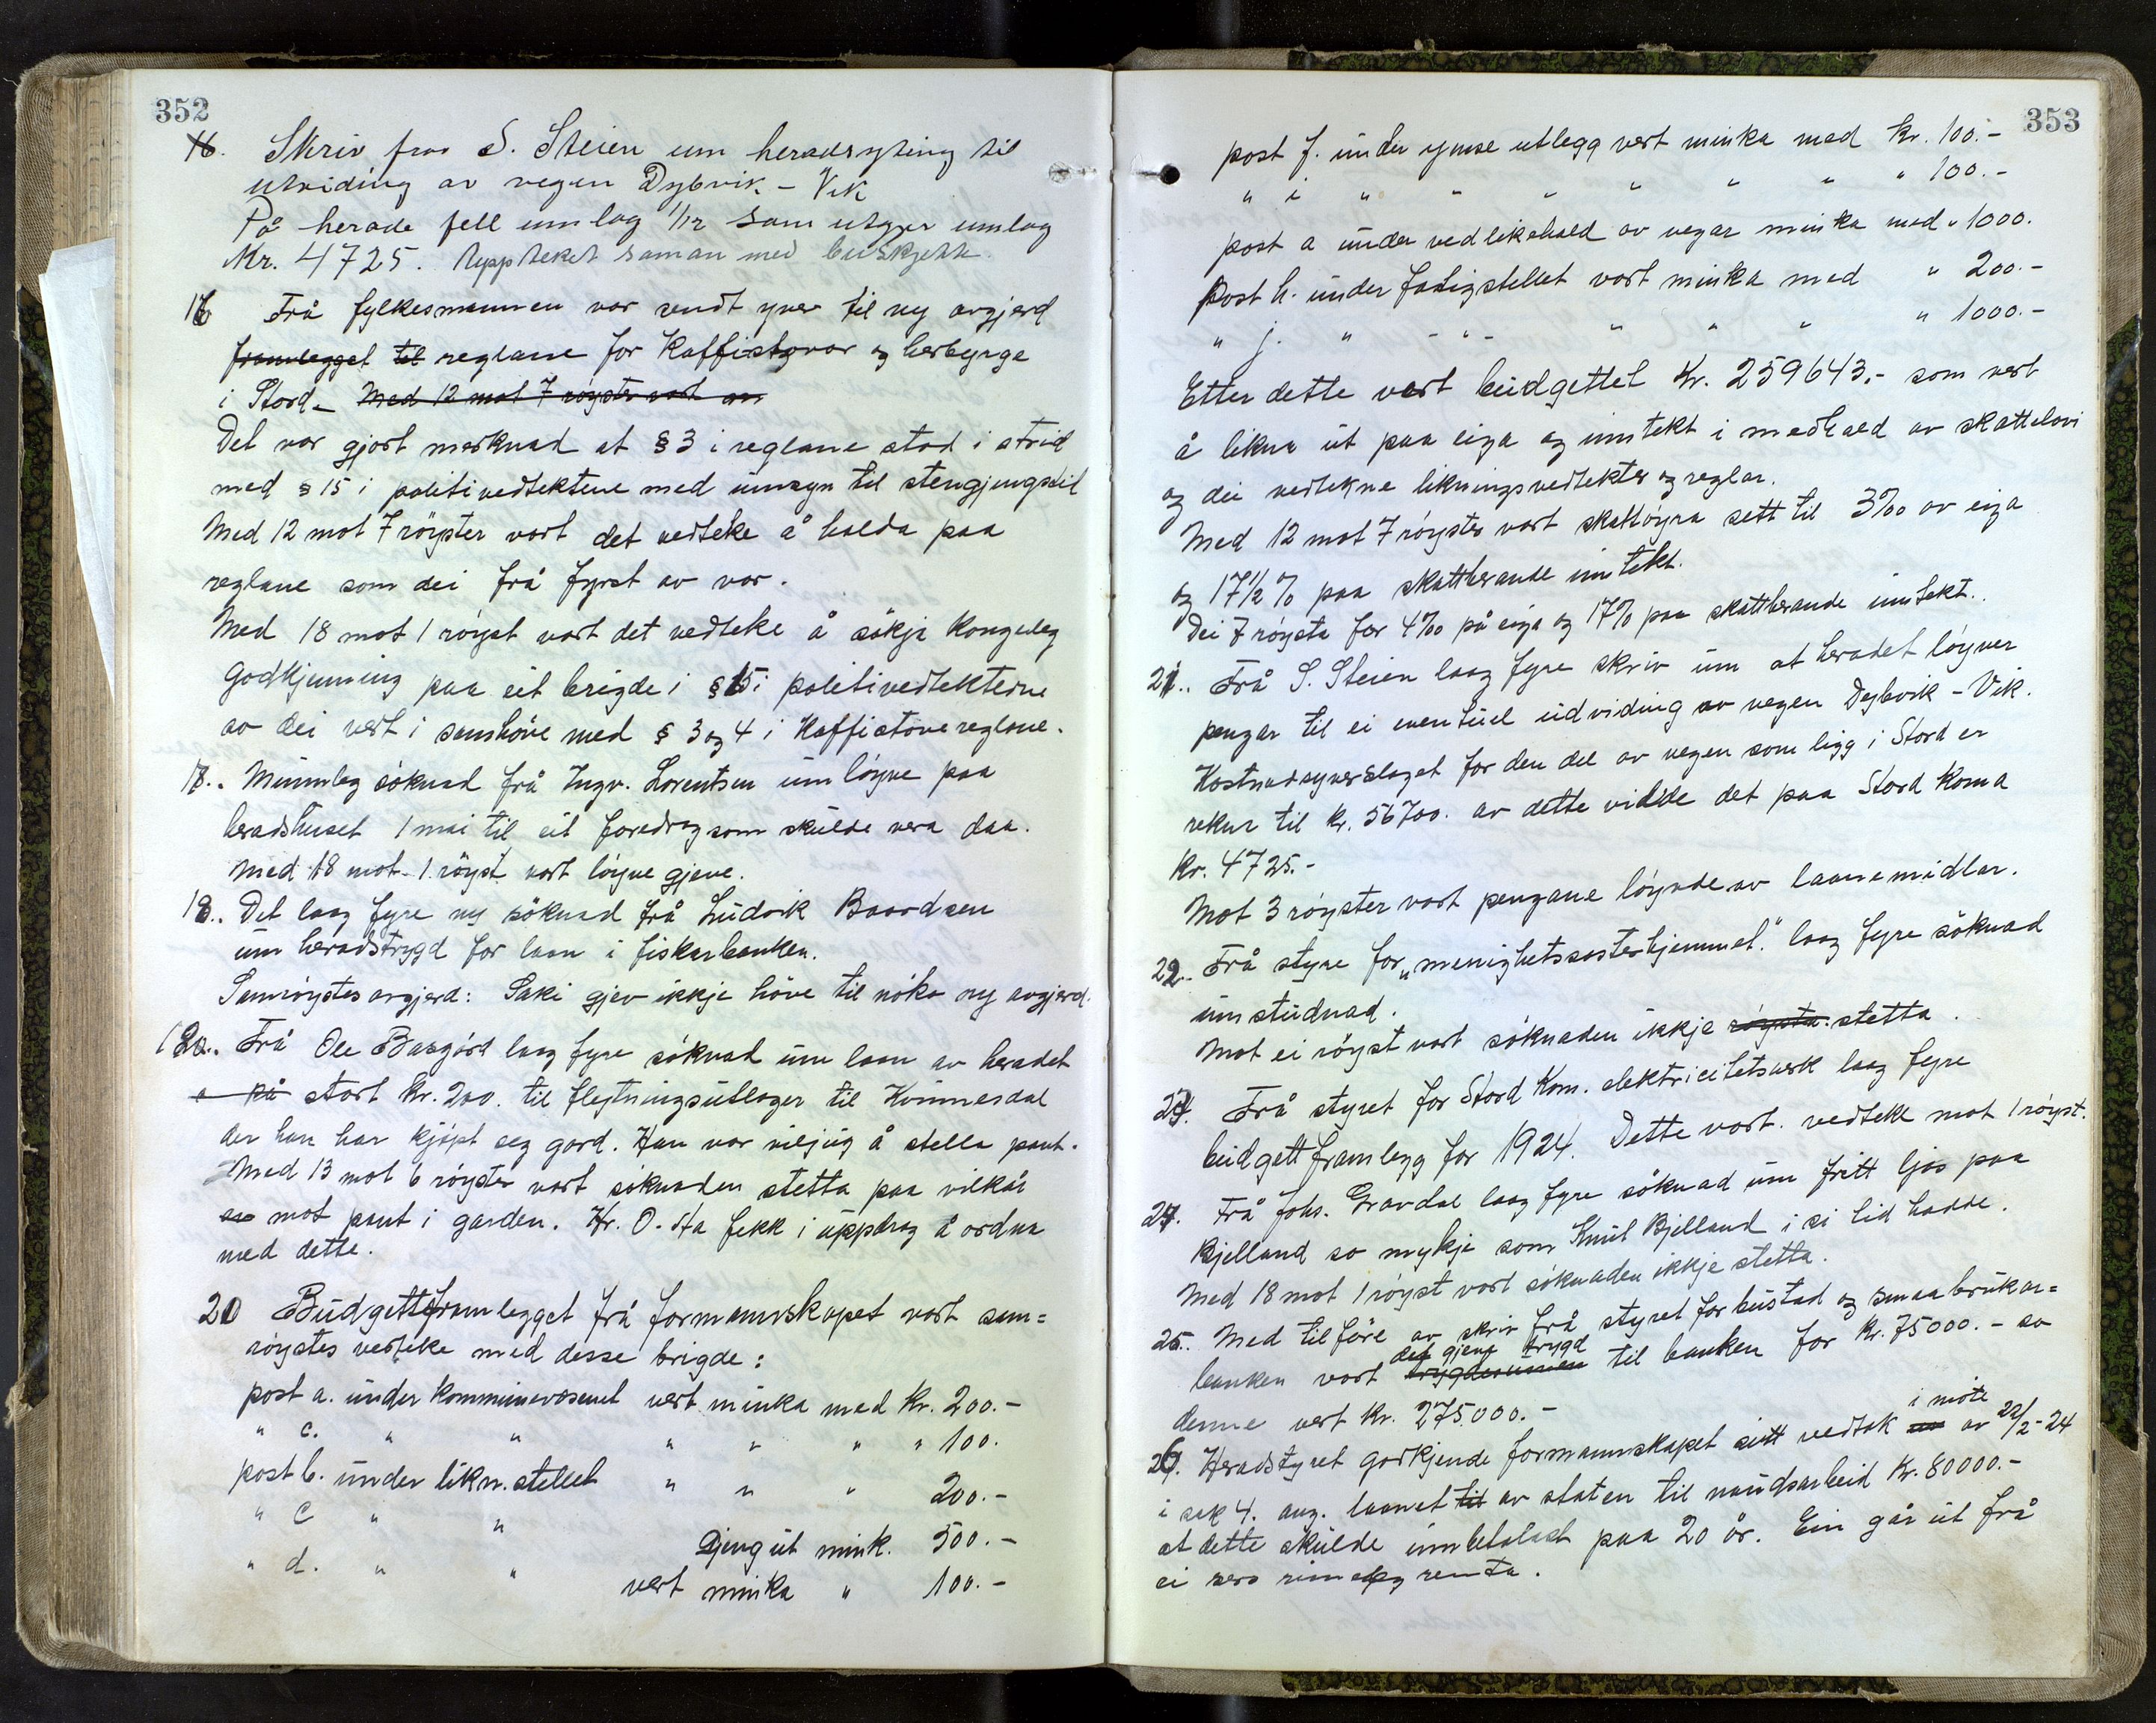 352
16. Skriv fraa S. Steien um heradsyting til
utviding av vegen Dybvik - Vik
På herade fell umlag 1/12 som utgjer umlag
Kr. 4725. Uppteket saman med budskjett.
16 Frå fylkesmannen var sendt yver til ny avgjerd
framlegget til reglane for Kaffistovor og herbyrge
i Stord. Med 12 mot 7 röyster vart av
Det var gjort merknad at § 3 i reglane stod i strid
med § 15 i politivedtektene med umsyn til stengjingstid
Med 12 mot 7 röyster vart det vedteke å halda paa
reglane som dei frå fyrst av var.
Med 18 mot 1 röyst vart det vedteke å sökja Kongeleg
godkjenning paa eit brigde i § 15 i politivedtektene
av dei vert i samhöve med § 3 og 4 i Kaffistovereglane.
17.. Munnleg söknad frå Ingv. Lorentsen um löyve paa
heradshuset 1 mai til eit foredrag som skulde vera daa.
Med 18 mot 1 röyst vart löyve gjeve.
18.. Det laag fyre ny söknad frå Ludvik Baardsen
um heradstrygd for laan i fiskarbanken.
Samröystes avgjerd: Saki gjev ikkje höve til noko ny avgjerd.
18a.. Frå Ole Basgörd laag fyre söknad um laan av heradet
a på stort kr. 200. til flytningsutlogor til Kvinnesdal
der han har kjöpt seg gard. Han var viljug å stella pant.
Med 13 mot 6 röyster vart söknaden stetta paa vilkår
av mot pant i garden. Hr. O. Sta fekk i uppdrag å ordna
med dette.
20 Budgettframlegget frå formannskapet vart sam=
röystes vedteke med desse brigde:
post a. under kommunevæsenet vert minka med Kr. 200.-
" c. " " " " " " 100.
post b. under likn. stellet " " " 200.-
" c " " Gjeng ut mink. 500.-
" d. " " vert minka " 100.-
353
post f. under ymse utlegg vert minka med kr. 100.-
" i " " " " " " " 100.-
post a under vedlikehald av vegar minka med " 1000.
Post h. under fatigstellet vart minka med " 200.-
" j. " - " - " " " " 1000.-
Etter dette vert budgettet Kr. 259643.- som vert
å likna ut paa eiga og inntekt i medhald av skattelovi
og dei vedtekne likningsvedtekter og reglar.
Med 12 mot 7 röyster vart skattöyra sett til 3‰ av eiga
og 17 1/2 % paa skattberande inntekt.
Dei 7 röysta for 4‰ på eiga og 17% paa skattberande inntekt..
21.. Frå S. Steien laag fyre skriv um at heradet löyver
pengar til ei eventuel utviding av vegen Dybvik - Vik.
Kostnadsyverslaget for den del av vegen som ligg i Stord er
rekna til kr. 56700. av dette vilde det paa Stord koma
kr. 4725.-
Mot 3 röyster vart pengane löyvde av laanemidlar.
22.. Frå styre for „menighetssøsterhjemmet." laag fyre söknad
um studnad.
Mot ei röyst vart söknaden ikkje röysta stetta.
23. Frå styret for Stord Kom. elektricitetsverk laag fyre
budgettframlegg for 1924. Dette vart vedteke mot 1 röyst.
24. Frå Johs. Gravdal laag fyre söknad um fritt ljos paa
Bjelland so mykje som Knut Bjelland i si tid hadde.
Med 18 mot 1 röyst vart söknaden ikkje stetta.
25.. Med tilföre av skriv frå styret for bustad og smaabrukar=
det gjeve trygd
banken vart trygdesummen til banken for kr. 75000.- so
denne vert kr. 275.000.-
i möte
26. Heradstyret godkjende formannskapet sitt vedtak av 22/2-24
i sak 4. ang. laanet til av staten til naudsarbeid kr. 80000.-
at dette skulde innbetalast paa 20 år. Ein går ut frå
ei rimeleg renta.